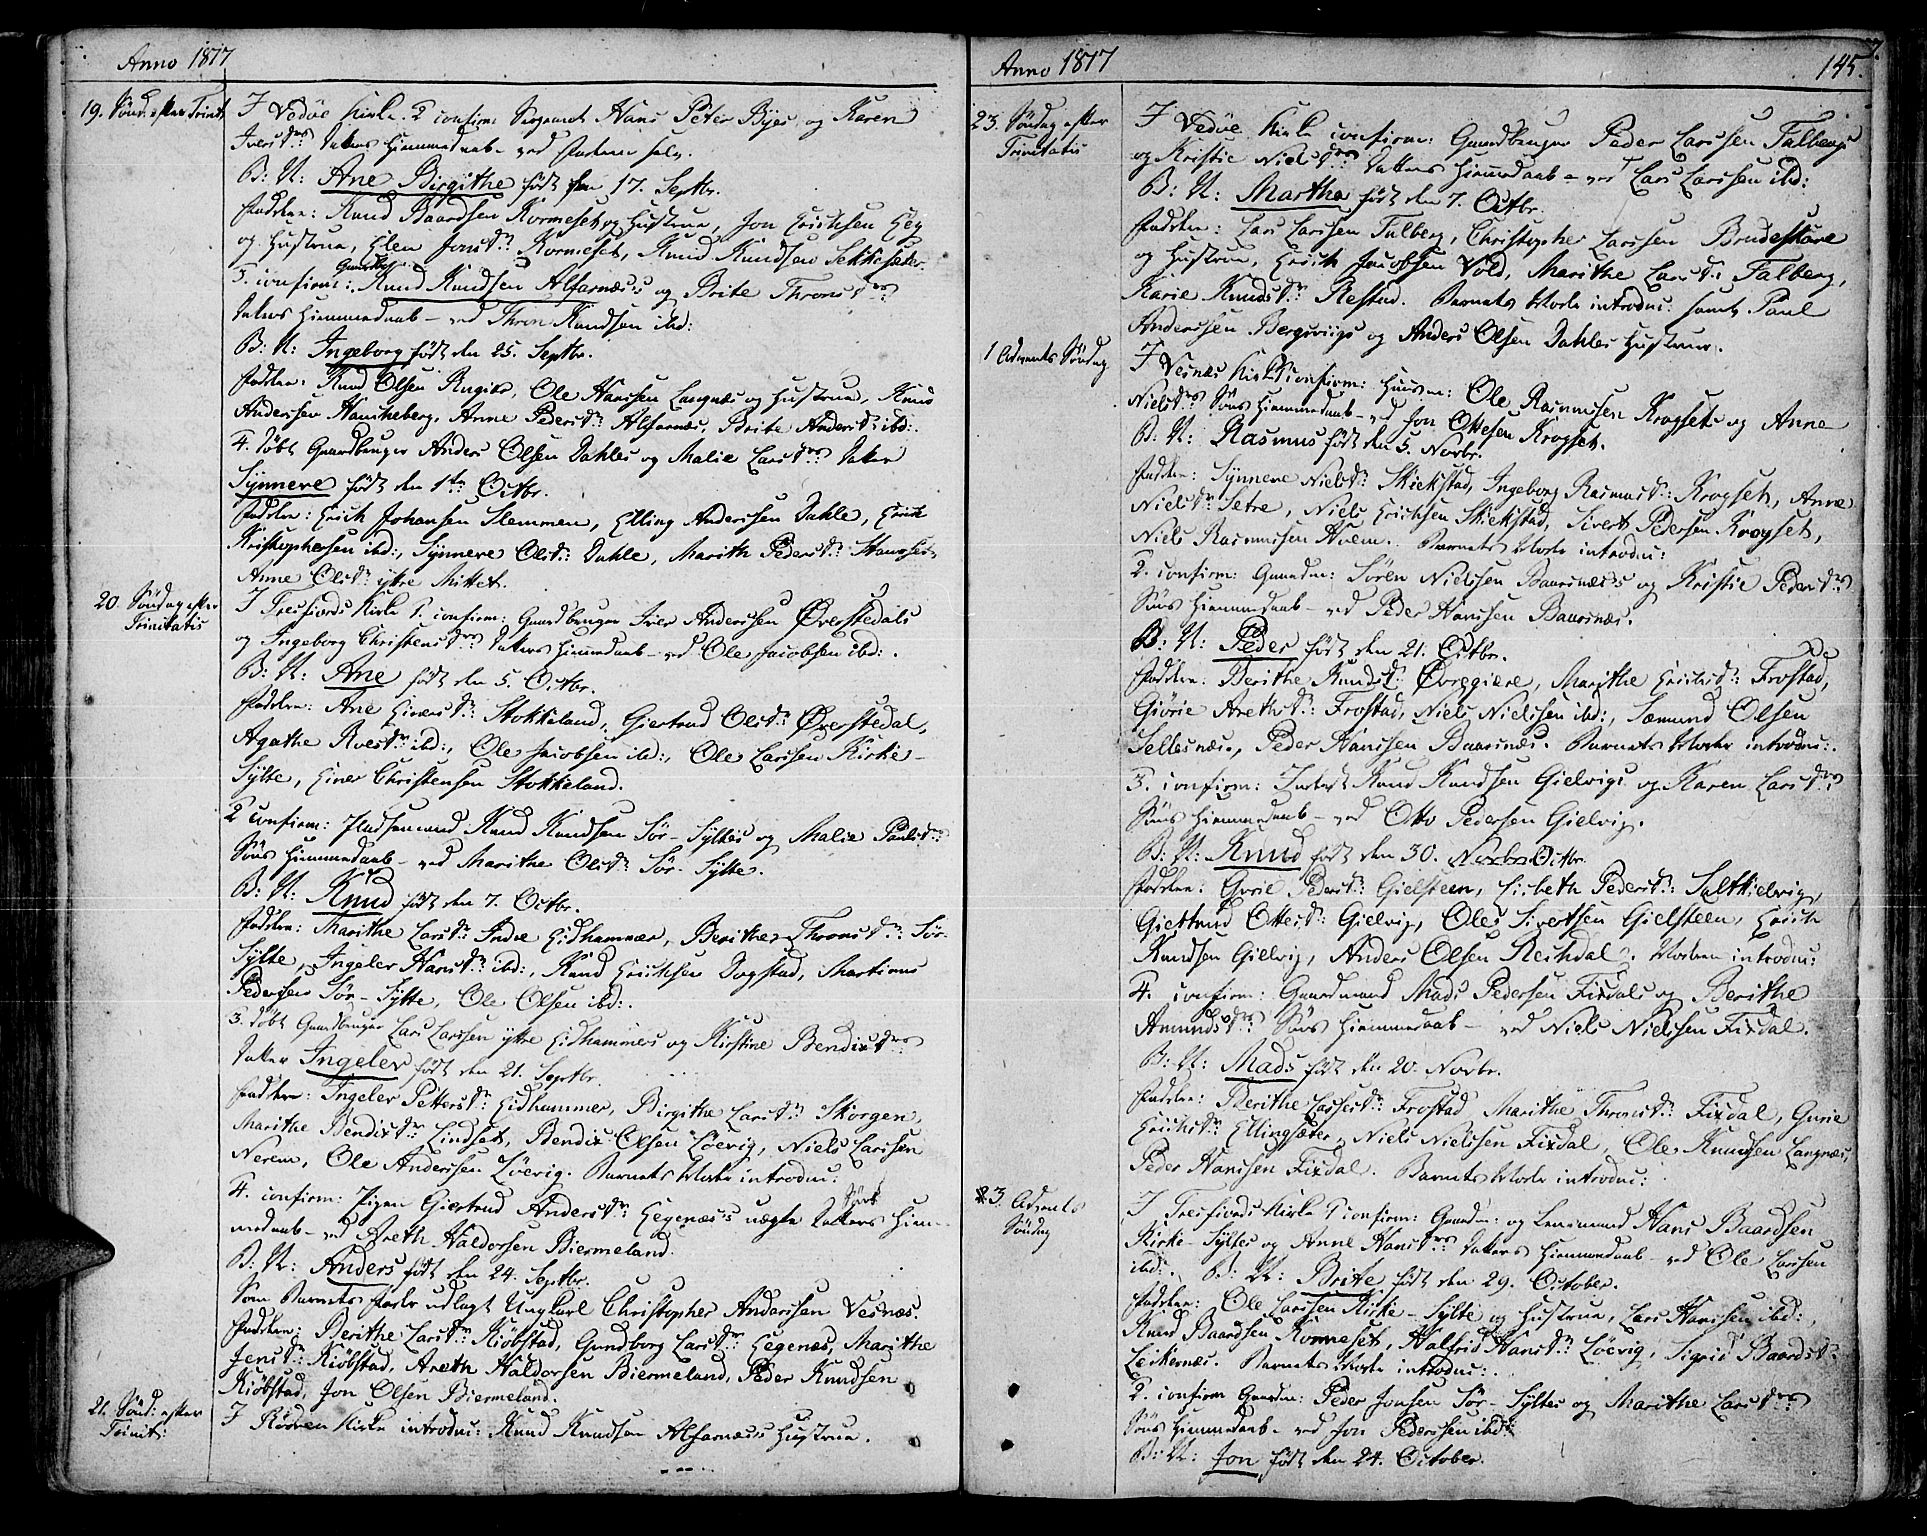 Anno 1817
19. Sönd. efter Trinit.
I Vedöe Kirke 2 confirm: Sergeant Hans Peter Byes og Karen
Iversdrs Datters Hiemmedaab - ved Faderen selv.
B: N: Ane Birgithe födt den 17. Septbr.
Faddere: Knud Baardsen Kormeset og Hustrue, Jon Erichsen Hey
og Hustrue, Elen Jonsdr Kormeset, Knud Knudsen Sekkesæter.
3. confirm: Gaardbr Knud Knudsen Alfarnæss og Brite Thronsdrs
Datters Hiemmedaab - ved Thron Knudsen ibd:
B: N: Ingeborg födt den 25. Septbr.
Faddere: Knud Olsen, Ole Hansen Langnæs og Hustrue, Knud
Anderssen Hanekeberg, Anne Pedersdr Alfarnæs, Brite Andersdr ibd:
4. Döbt Gaardbruger Anders Olsen Dahles og Malie Larsdrs Datter
Synneve födt den 1te Octbr.
Faddere: Erich Johansen Slemmen, Elling Anderssen Dahle, Erich
Kristophersen ibd:, Synneve Olsdr Dahle, Marith Pedersdr
Anne Olsdr ytre Mittet.
20. Söndag efter
Trinitatis
I Tresfiords Kirke 1. confirm: Gaardbruger Iver Anderssen Överstedals
og Ingeborg Christensdrs Datters Hiemmedaab - ved Ole Jacobsen ibd:.
B: N: Ane födt den 5. Octbr.
Faddere: Ane Einersdr Stokkeland, Giertrud Olsdr Överstedal,
Agathe Roesdr ibd:, Ole Jacobsen ibd:, Ole Larssen Kirke-
Sylte, Einer Christensen Stokkeland.
2 confirm: Huusmand Knud Knudsen Sör-Syltes og Malie Paulsdrs
Söns Hiemmedaab - ved Marithe Olsdr Sör-Sylte.
B: N: Knud födt den 7. Octbr.
Faddere: Marithe Larsdr Indre Eidhammer, Berithe Thronsdr Sör-
Sylte, Ingeler Hansdr ibd:, Knud Erichsen Dogstad, Martinus
Pedersen Sör-Sylte, Ole Olsen ibd:.
3. Döbt Gaardbruger Lars Larssen ytre Eidhammers og Kirstine Bendixdrs
Datter Ingeler födt den 21. Septbr.
Faddere: Ingeler Pettersdr Eidhammer, Birgithe Larsdr Skorgen,
Marithe Bendixdr Lindset, Bendix Olsen Löevig, Niels Larssen
Nerem, Ole Anderssen Löevig. Barnets Moder introdu:
4. confirm: Pigen Giertrud Andersdr Hegenæs's uægte Söns Hiem-
medaab - ved Areth Haldorsen Biermeland.
B: N: Anders födt den 24. Septbr.
Som Barnets Fader udlagt Ungkarl Christopher Anderssen Vesnæs.
Faddere: Berithe Larsdr Kiöbstad, Gundborg Larsdr Hegenæs, Marithe
Jensdr Kiöbstad, Areth Haldorsen Biermeland, Peder Knudsen
Kiöbstad, Jon Olsen Biermeland.
21. Sönd: efter
Trinit:
I Rödven Kirke introdu: Knud Knudsen Alfarnæss Hustrue.
Anno 1817
145.
23. Söndag efter
Trinitatis
I Vedöe Kirke confirm: Gaardbruger Peder Larssen Talbergs
og Kristie Nielsdrs Datters Hiemmedaab - ved Lars Larssen ibd:
B: N: Marthe födt den 7. Octbr.
Faddere: Lars Larssen Talberg, Christopher Larssen Brudeskare
og Hustrue, Erich Jacobsen Vold, Marithe Larsdr Talberg,
Karie Knudsdr Restad. Barnets Moder introdu: samt Paul
Anderssen Bergsviigs og Anders Olsen Dahles Hustruer.
1 Advents Söndag
I Vesnæs Kirke 1 confirm: Huusm: Ole Rasmussen Krogsets og Anne
Nielsdrs Söns Hiemmedaab - ved Jon Ottesen Krogset.
B: N: Rasmus födt den 5. Novbr.
Faddere: Synneve Nielsdr Skiekstad, Ingeborg Rasmusdr Krogset, Anne
Nielsdr Setre, Niels Erichsen Skiekstad, Sivert Pedersen Krogset,
Niels Rasmussen Hvem. Barnets Moder introdu:
2. confirm: Gaardm: Sören Nielssen Baarsnæss og Kristie Pedersdrs
Söns Hiemmedaab - ved Peder Hanssen Baarsnæs.
B: N: Peder födt den 21. Octbr.
Faddere: Berithe Knudsdr Övregiere, Marithe Erichsdr Frostad,
Giörie Arethsdr Frostad, Niels Nielssen ibd:, Sæmund Olsen
Sellesnæs, Peder Hanssen Baarsnæs. Barnets Moder introdu:.
3. confirm: Inderst Knud Knudsen Gielvigs og Karen Larsdrs
Söns Hiemmedaab - ved Otto Pedersen Gielvig.
B: N: Knud födt den 30. Novbr Octbr.
Faddere: Gurie Pedersdr Gielsteen, Lisbeth Pedersdr Saltkielvig,
Giertrud Ottesdr Gielvig, Ole Sivertsen Gielsteen, Erich
Knudsen Gielvig, Anders Olsen Reihdal. Moderen introdu:
4. confirm: Gaardmand Mads Pedersen Fixdals og Berithe
Amundsdrs Söns Hiemmedaab - ved Niels Nielssen Fixdal.
B: N: Mads födt den 20. Novbr.
Faddere: Berithe Lassesdr Frostad, Marithe Thronsdr Fixdal, Gurie
Erichsdr Ellingsæter, Niels Nielssen Fixdal, Ole Knudsen Langnæs,
Peder Hanssen Fixdal. Barnets Moder introdu:
3. Advents
Söndag
I Tresfiords Kirke 1 confirm: Gaardm: og Lensmand Hans Baardsen
Kirke-Syltes og Anne Hansdrs Datters Hiemmedaab - ved Ole Larssen
ibd:. B: N: Brite födt den 29. October.
Faddere: Ole Larssen Kirke-Sylte og Hustrue, Lars Hanssen ibd:,
Knud Baardsen Kormeset, Halfrid Hansdr Löevig, Sigrid Baardsdr
Leikernæs. Barnets Moder introdu:.
2. confirm Gaardm: Peder Jonsen Sör-Syltes og Marithe Larsdrs
Söns Hiemmedaab - ved Jon Pederssen ibd:
B: N: Jon födt den 24. October.